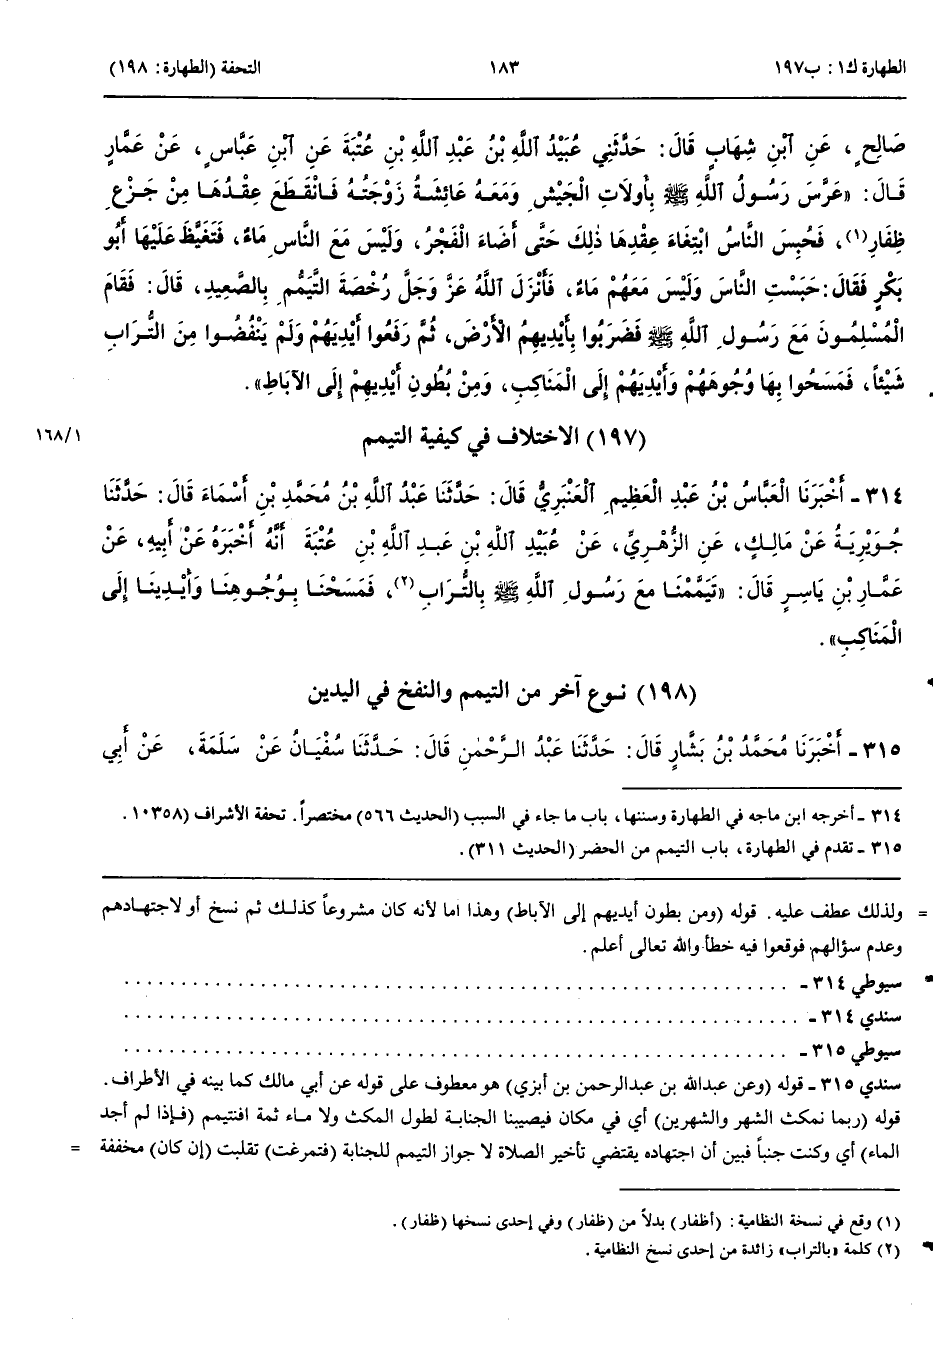 الطهارة ك١: ب١٩٧ ١٨٣ التحفة (الطهارة: ١٩٨)
صَالِحٍ، عَنِ ٱبْنِ شِهَابٍ قَالَ: حَدَّثَنِي عُبَيْدُ ٱللَّهِ بْنُ عَبْدِ ٱللَّهِ بْنِ عُتْبَةَ عَنِ ٱبْنِ عَبَّاسٍ، عَنْ عَمَّارٍ
قَالَ: «عَرَّسَ رَسُولُ ٱللَّهِ ﷺ بِأُولَاتِ الْجَيْشِ وَمَعَهُ عَائِشَةُ زَوْجَتُهُ فَانْقَطَعَ عِقْدُهَا مِنْ جَزْعِ
ظِفَارِ(١)، فَحُبِسَ النَّاسُ ابْتِغَاءَ عِقْدِهَا ذٰلِكَ حَتَّى أَضَاءَ الْفَجْرُ، وَلَيْسَ مَعَ النَّاسِ مَاءٌ، فَتَغَيَّظَ عَلَيْهَا أَبُو
بَكْرٍ فَقَالَ: حَبَسْتِ النَّاسَ وَلَيْسَ مَعَهُمْ مَاءٌ، فَأَنْزَلَ اللَّهُ عَزَّ وَجَلَّ رُخْصَةَ التَّيَمُّمِ بِالصَّعِيدِ، قَالَ: فَقَامَ
الْمُسْلِمُونَ مَعَ رَسُولِ ٱللَّهِ ﷺ فَضَرَبُوا بِأَيْدِيهِمُ الْأَرْضَ، ثُمَّ رَفَعُوا أَيْدِيَهُمْ وَلَمْ يَنْفُضُوا مِنَ التُّرَابِ
شَيْئاً، فَمَسَحُوا بِهَا وُجُوهَهُمْ وَأَيْدِيَهُمْ إِلَى الْمَنَاكِبِ، وَمِنْ بُطُونِ أَيْدِيهِمْ إِلَى الآبَاطِ».
(١٩٧) الاختلاف في كيفية التيمم ١٦٨/١
٣١٤ - أَخْبَرَنَا الْعَبَّاسُ بْنُ عَبْدِ الْعَظِيمِ ٱلْعَنْبَرِيُّ قَالَ: حَدَّثَنَا عَبْدُ ٱللَّهِ بْنُ مُحَمَّدِ بْنِ أَسْمَاءَ قَالَ: حَدَّثَنَا
جُوَيْرِيَةُ عَنْ مَالِكٍ، عَنِ الزُّهْرِيِّ، عَنْ عُبَيْدِ اللَّهِ بْنِ عَبدِ اللَّهِ بْنِ عُتْبَةَ أَنَّهُ أَخْبَرَهُ عَنْ أَبِيهِ، عَنْ
عَمَّارِ بْنِ يَاسِرٍ قَالَ: «تَيَمَّمْنَا مَعَ رَسُولِ ٱللَّهِ ﷺ بِالتُّرَابِ(٢)، فَمَسَحْنَا بِوُجُوهِنَا وَأَيْدِينَا إِلَى
الْمَنَاكِبِ».
(١٩٨) نوع آخر من التيمم والنفخ في اليدين
٣١٥ - أَخْبَرَنَا مُحَمَّدُ بْنُ بَشَّارٍ قَالَ: حَدَّثَنَا عَبْدُ الرَّحْمٰنِ قَالَ: حَدَّثَنَا سُفْيَانُ عَنْ سَلَمَةَ، عَنْ أَبِي
٣١٤ - أخرجه ابن ماجه في الطهارة وسننها، باب ما جاء في السبب (الحديث ٥٦٦) مختصراً. تحفة الأشراف (١٠٣٥٨.
٣١٥ - تقدم في الطهارة، باب التيمم من الحضر (الحديث ٣١١).
= ولذلك عطف عليه. قوله (ومن بطون أيديهم إلى الآباط) وهذا اما لأنه كان مشروعاً كذلك ثم نسخ أو لاجتهادهم
وعدم سؤالهم فوقعوا فيه خطأ والله تعالى أعلم.
سيوطي ٣١٤ - . . . . . . . . . . . . . . . . . . . . . . . . . . . . . .
سندي ٣١٤ - . . . . . . . . . . . . . . . . . . . . . . . . . . . . . .
سيوطي ٣١٥ - . . . . . . . . . . . . . . . . . . . . . . . . . . . . . .
سندي ٣١٥ - قوله (وعن عبدالله بن عبدالرحمن بن أبزي) هو معطوف على قوله عن أبي مالك كما بينه في الأطراف.
قوله (ربما نمكث الشهر والشهرين) أي في مكان فيصيبنا الجنابة لطول المكث ولا ماء ثمة افنتيمم (فإذا لم أجد
الماء) أي وكنت جنباً فبين أن اجتهاده يقتضي تأخير الصلاة لا جواز التيمم للجنابة (فتمرغت) تقلبت (إن كان) مخففة =
(١) وقع في نسخة النظامية: (أظفار) بدلاً من (ظفار) وفي إحدى نسخها (ظفار).
(٢) كلمة «بالتراب» زائدة من إحدى نسخ النظامية.